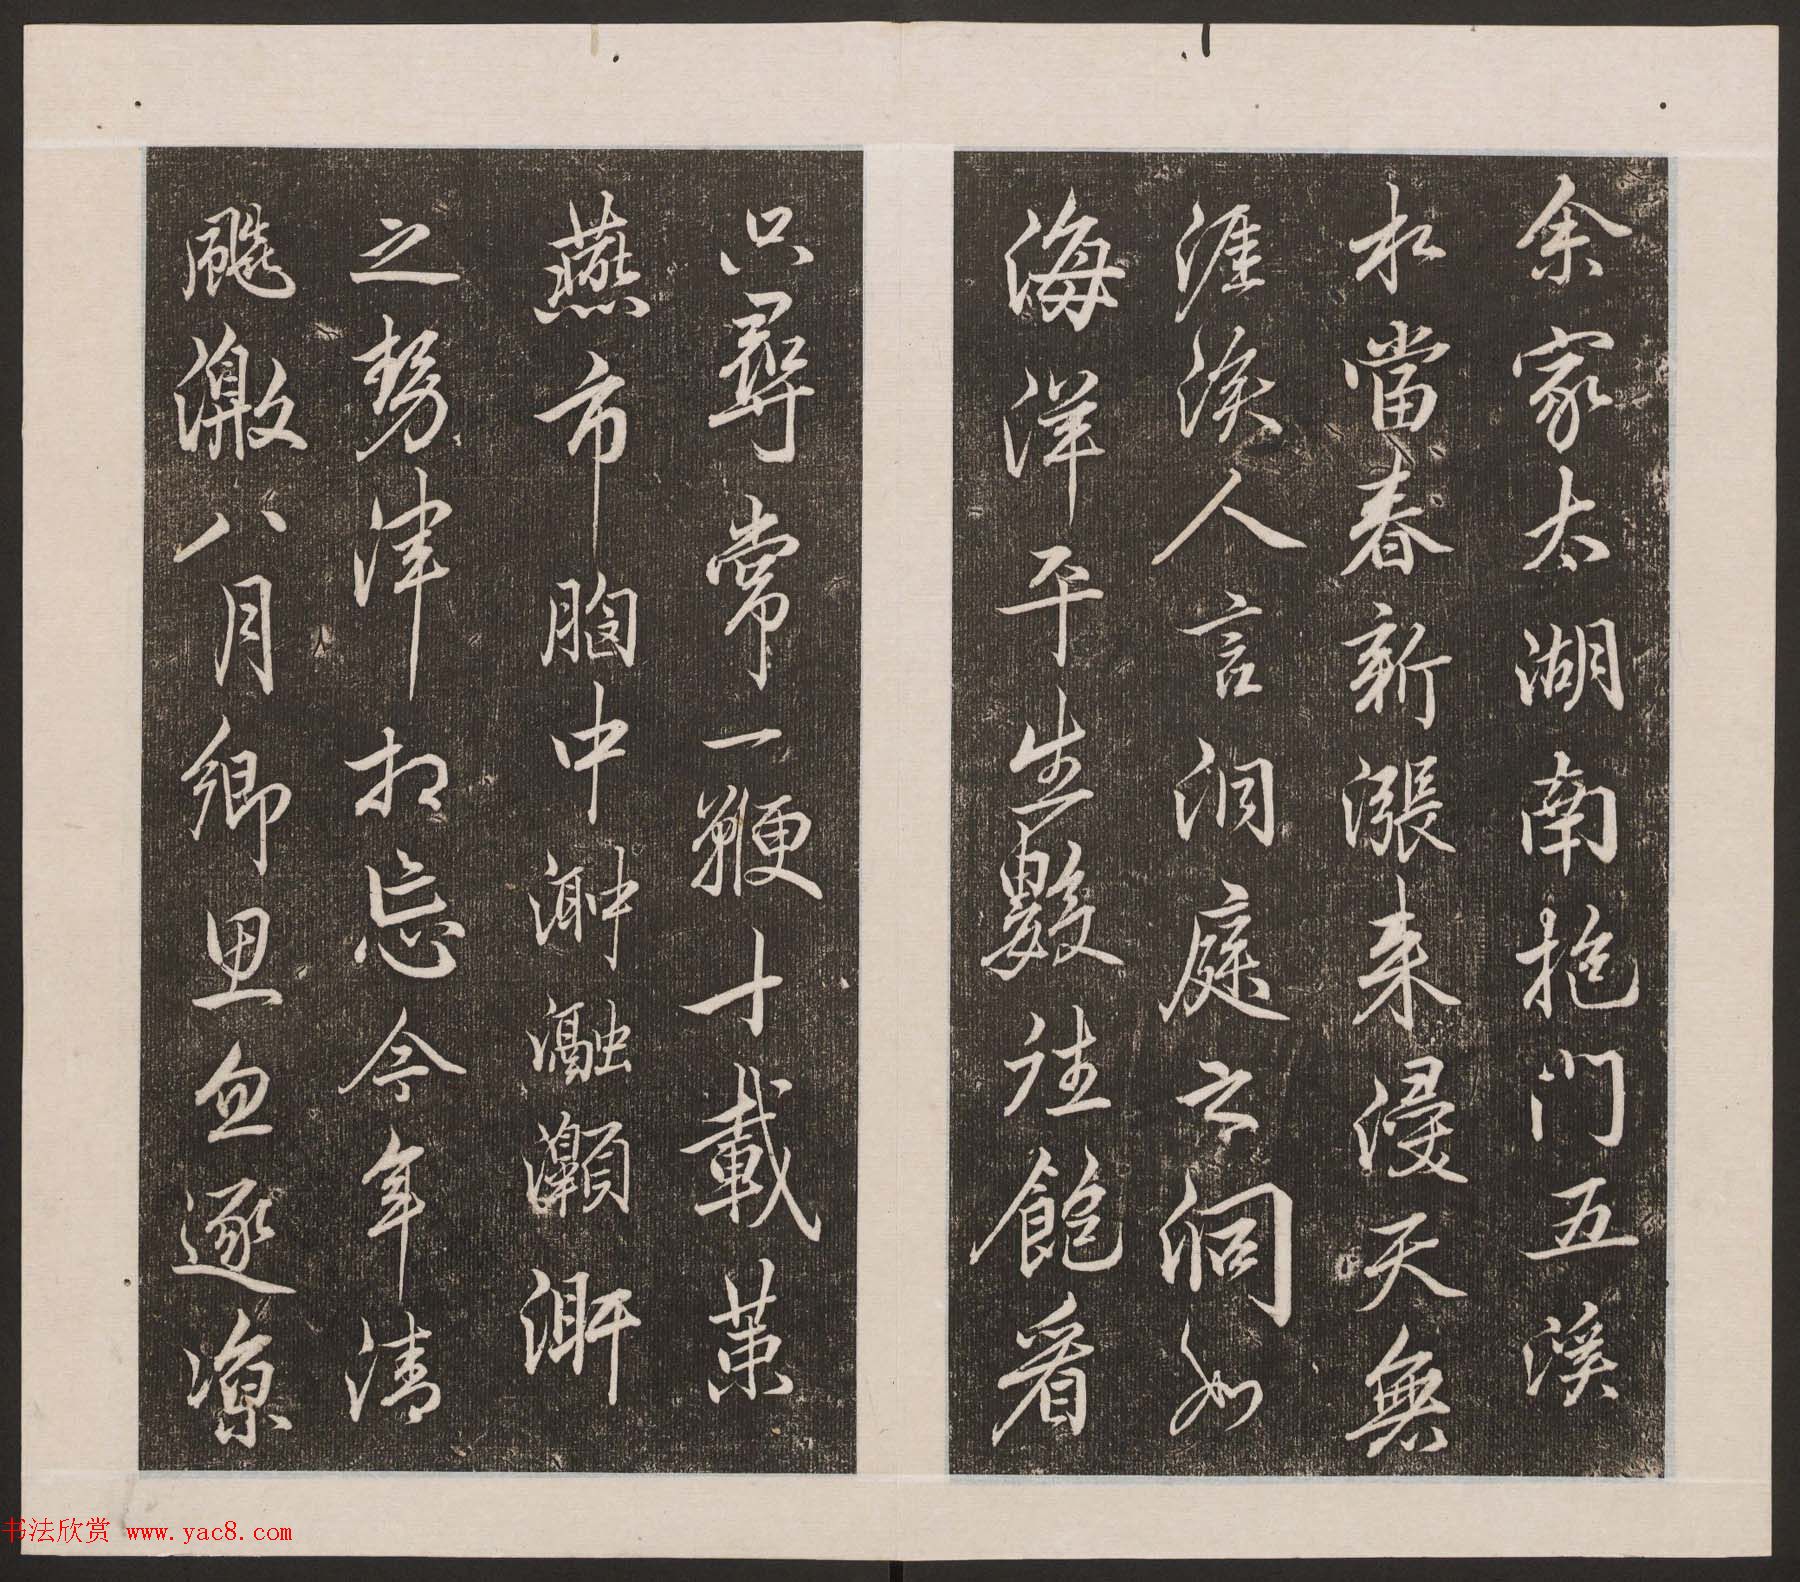 余家太湖南抱門五溪
水當春新漲来浸天無
涯涘人言洞庭之洞如
海洋平生數往飽看
只尋常一鞭十載策
燕市胸中瀜灝
之勢渾相忘今年清
飈激八月鄉思忽逐涼
书法欣赏 www.yac8.com